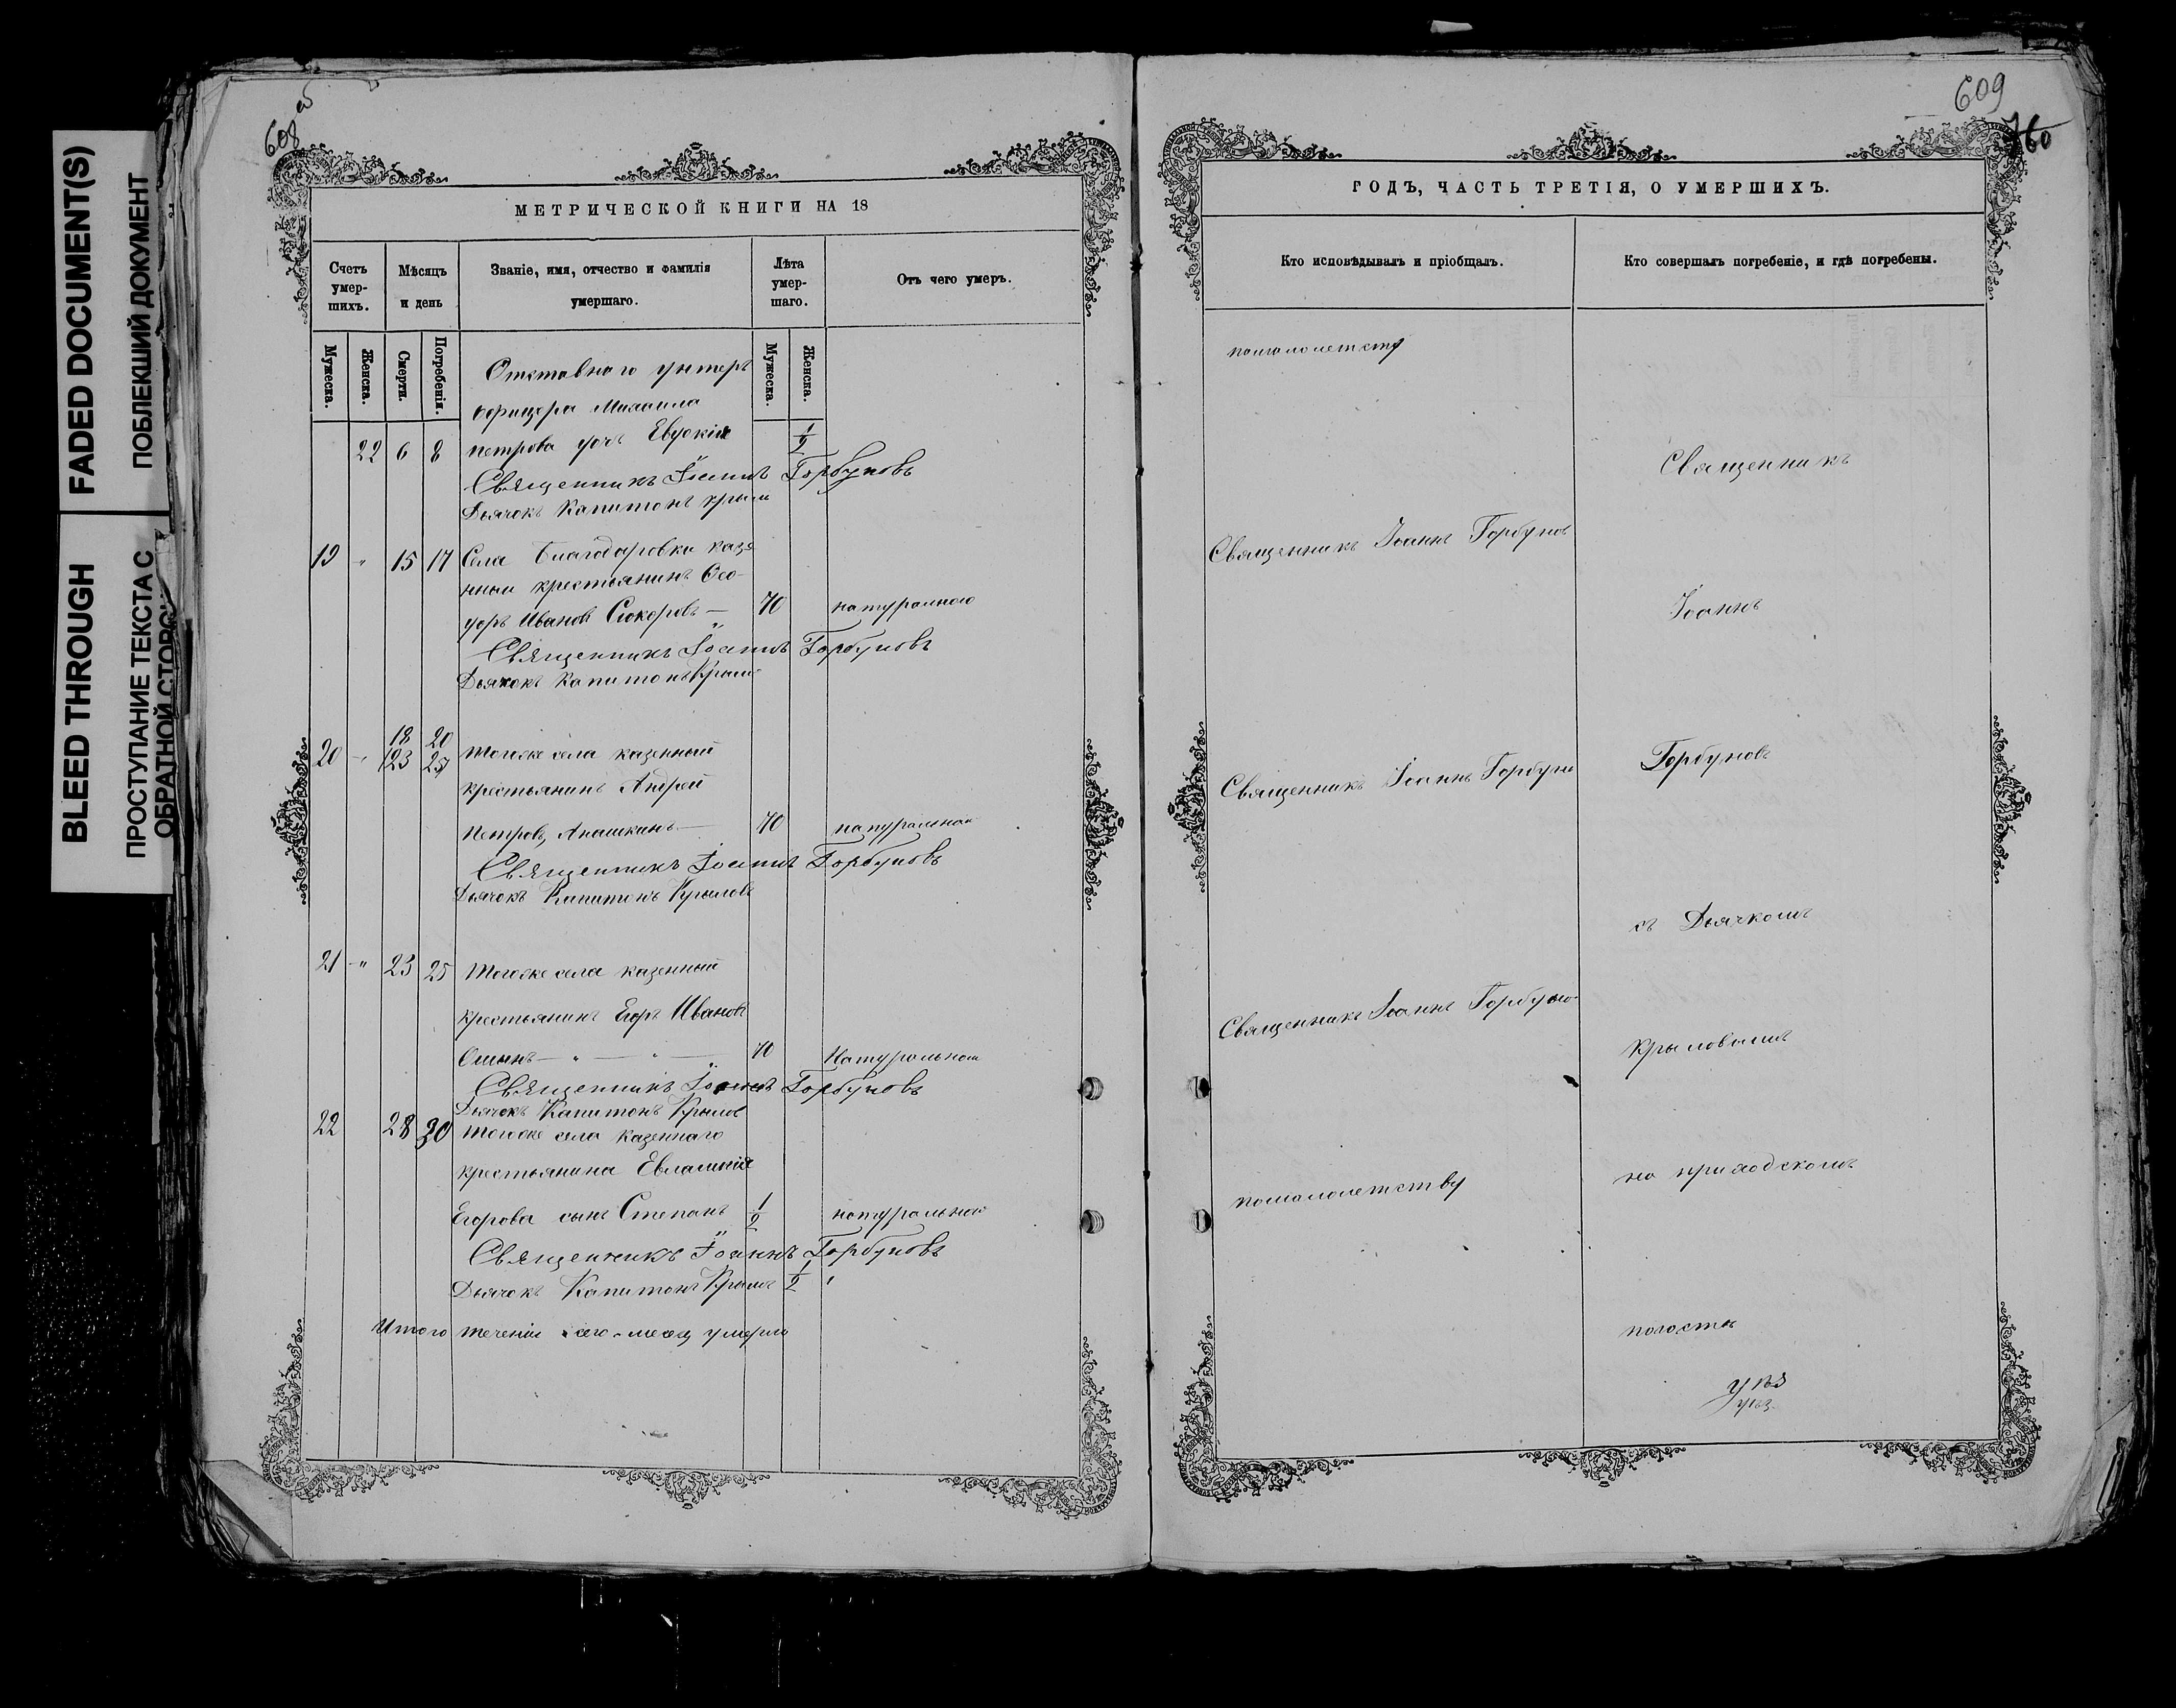 FADED DOCUMENT(S)
ПОБЛЕКШИЙ ДОКУМЕНТ
BLEED THROUGH
ПРОСТУПАНИЕ ТЕКСТА С
ОБРАТНОЙ СТОРО
608
МЕТРИЧЕСКОЙ КНИГИ НА 18
Счетъ умер-шихъ.
Мѣсяцъ и день
Званіе, имя, отчество и фамилія умершаго.
Лѣта умер-шаго.
Отъ чего умеръ.
Мужеска.
Женска.
Смерти.
Погребенія.
Мужеска.
Женска.
Отставнаго унтеръ
офицера Михаила
22 6 8 петрова дочь Евдокія 1/2
Священникъ Іоаннъ Горбуновъ
Дьячокъ Капитонъ Крыл
19 " 15 17 Села Благодаровки казе
нный крестьянинъ Ѳео-
доръ Ивановъ — 70 натуральною
Священникъ Іоаннъ Горбуновъ
Дьячокъ Капитонъ Крыл
18 20
20 " 23 25 Тогоже села казенный
крестьянинъ Андрей
Петровъ Апашкинъ — 70 натуральною
Священникъ Іоаннъ Горбуновъ
Дьячокъ Капитонъ Крыловъ
21 " 23 25 Тогоже села казенный
крестьянинъ Егоръ Ивановъ
— " — " — 70 Натуральною
Священникъ Іоаннъ Горбуновъ
Дьячокъ Капитонъ Крылов
22 28 30 Тогоже села казеннаго
крестьянина Евлампія
Егорова сынъ Степанъ 1/2 натуральною
Священникъ Іоаннъ Горбуновъ
Дьячокъ Капитонъ Крылъ 1/2
Итого теченіи сего месец умерло
609
760
ГОДЪ, ЧАСТЬ ТРЕТІЯ, О УМЕРШИХЪ.
Кто исповѣдывалъ и пріобщалъ.
Кто совершалъ погребеніе, и гдѣ погребены.
помалолетству
Священникъ
Священникъ Іоаннъ Горбунов
Іоаннъ
Священникъ Іоаннъ Горбуно
Горбуновъ
съ Дьячкомъ
Священникъ Іоаннъ Горбуно-
Крыловымъ
помалолетству
на приходскомъ
погостѣ